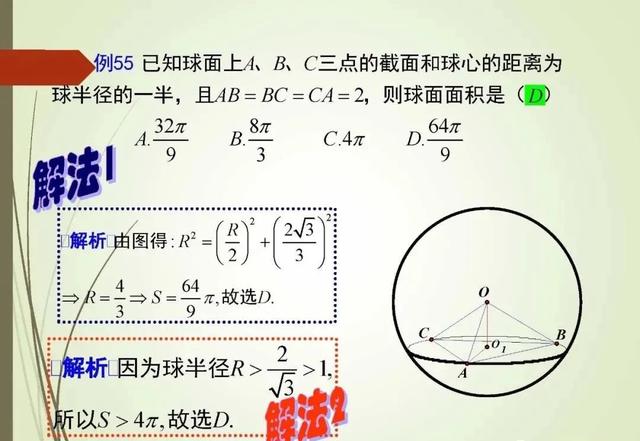 例55 已知球面上A、B、C三点的截面和球心的距离为
球半径的一半，且AB=BC=CA=2，则球面面积是（D）
A.32π/9 B.8π/3 C.4π D.64π/9
解法1
【解析】由图得:R²=(R/2)²+(2√3/3)²
⇒R=4/3⇒S=64/9π,故选D.
【解析】因为球半径R>2/√3>1,
所以S>4π,故选D.
解法2
O
C
B
O₁
A